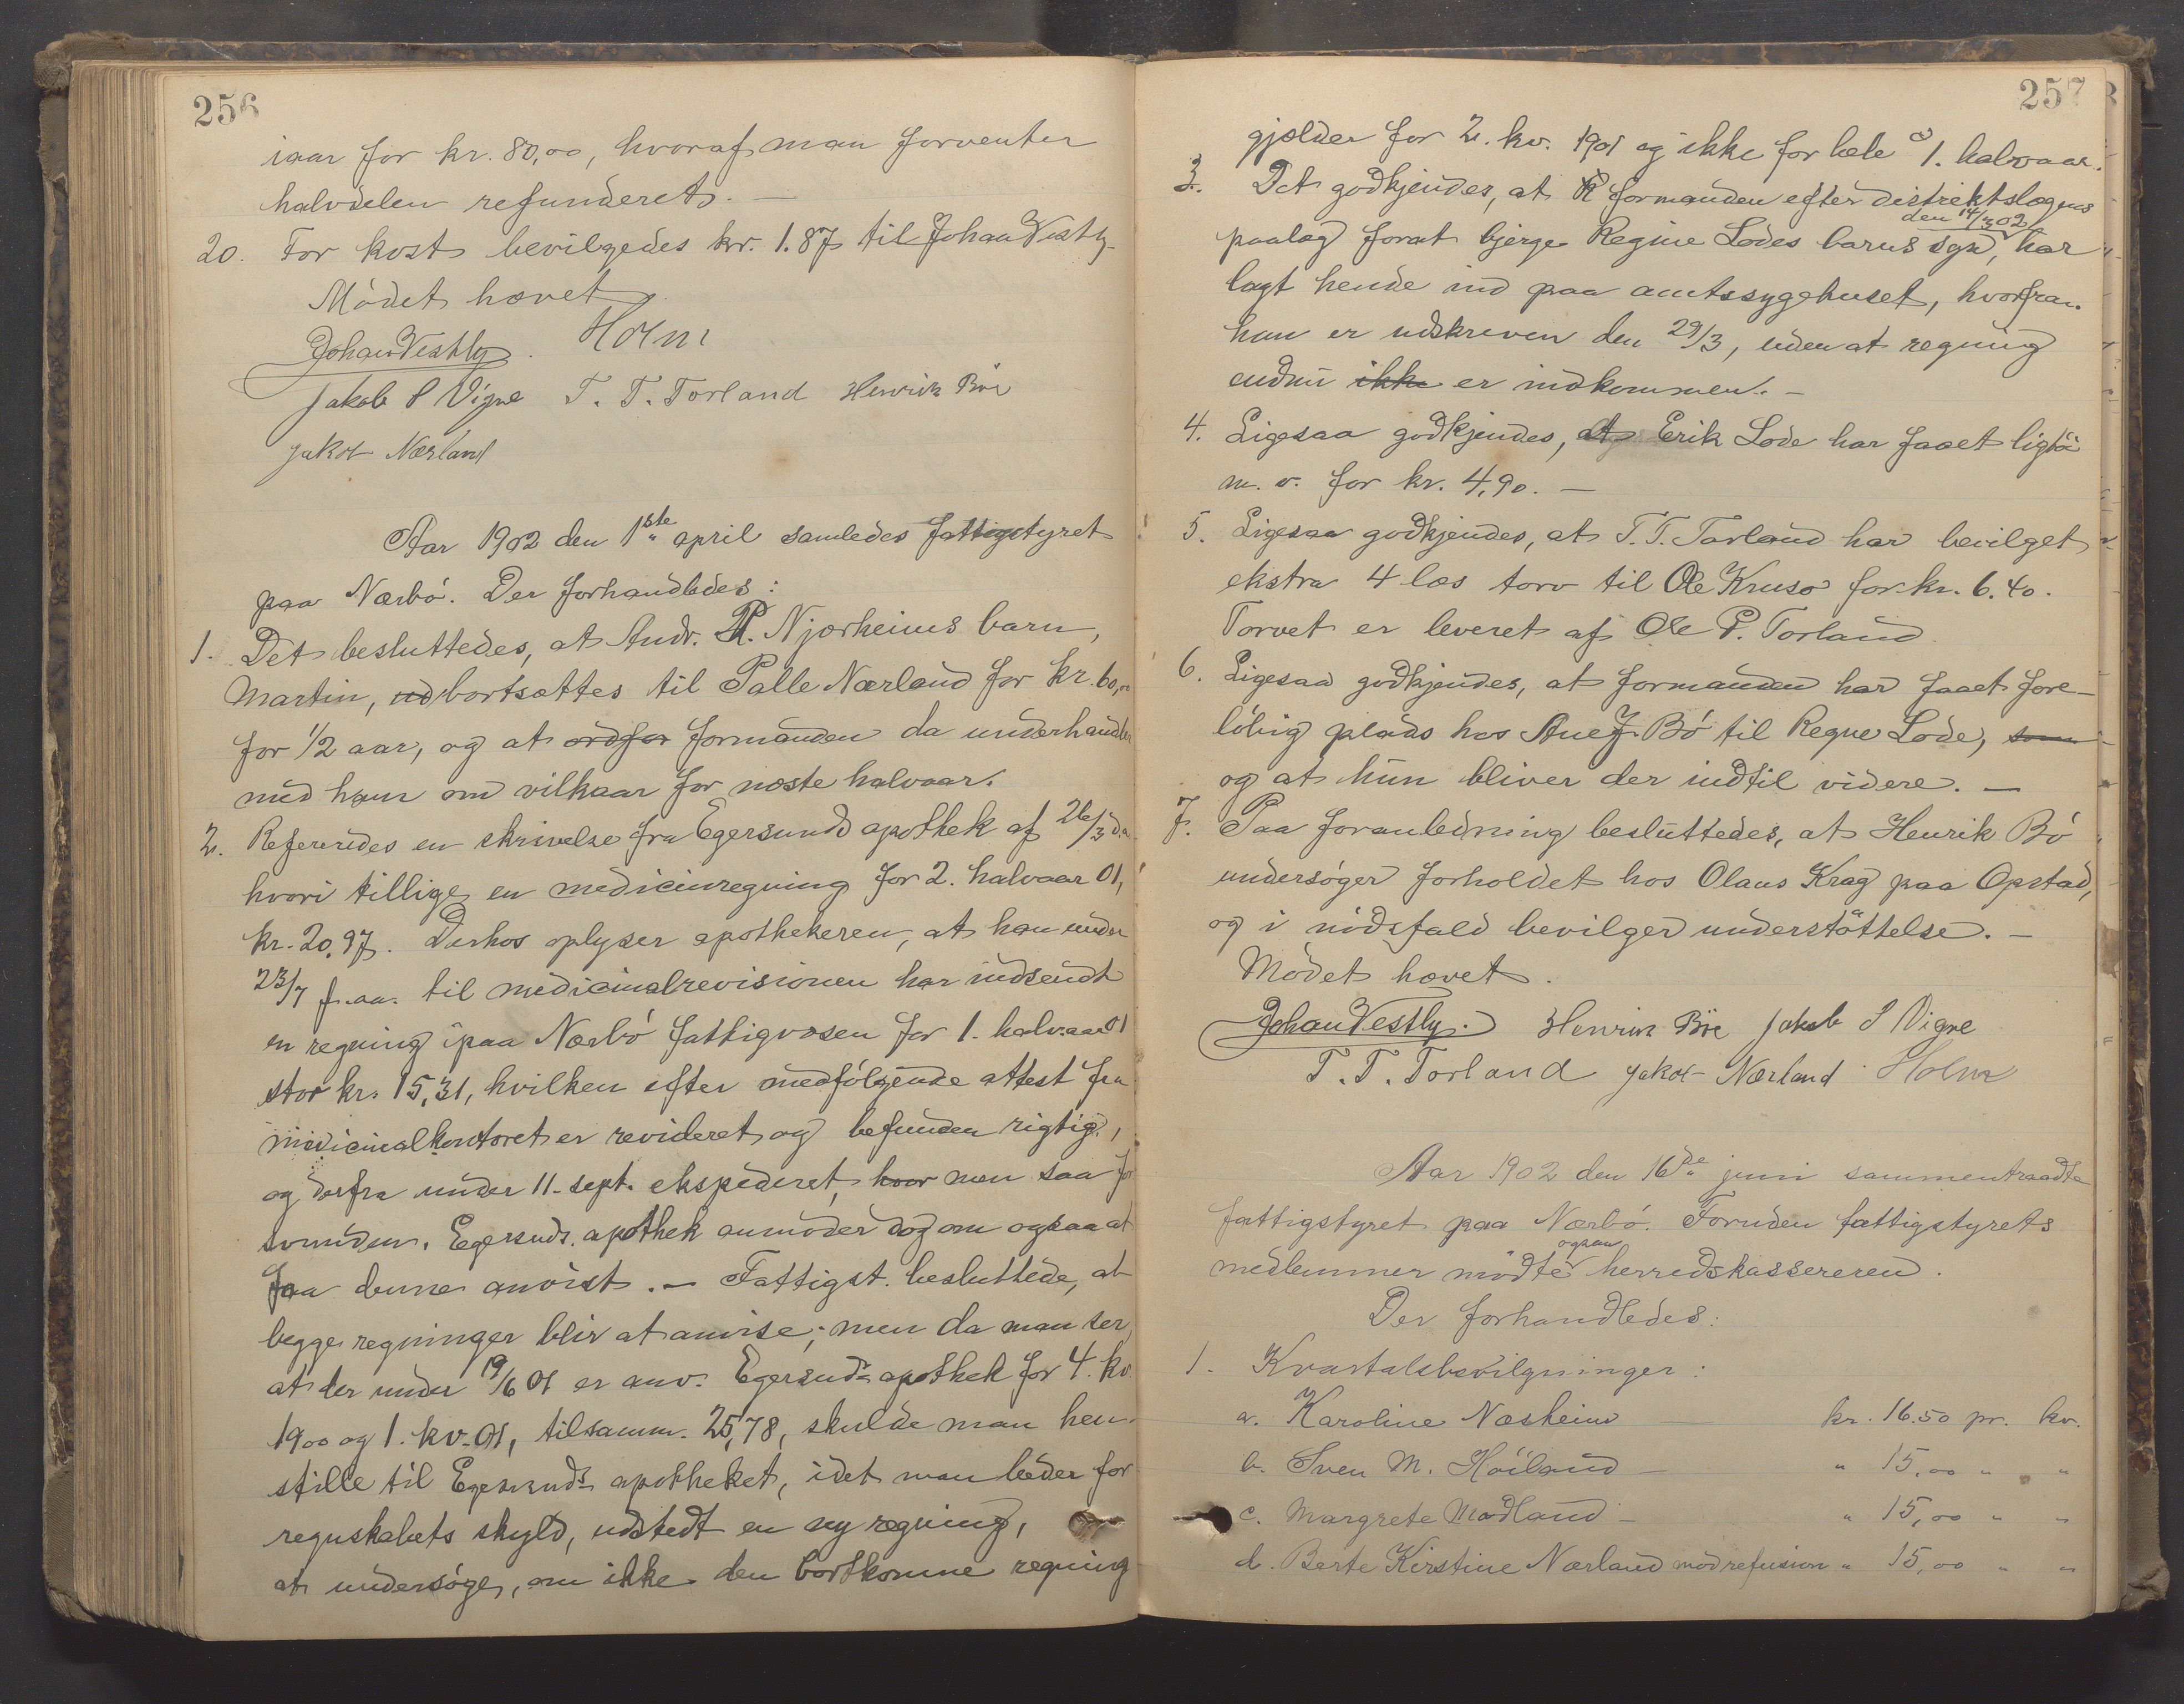 256
iaar for kr. 80,00, hvoraf man forventer
halvdelen refunderet. —
20. For kost bevilgedes kr. 1.87 til Johan Vestly.
Mödet hævet.
Johan Vestly. Holm
Jakob S Vigre T. T. Torland Henrik Böe
Jakob Nærland
Aar 1902 den 1ste april samledes fattigstyret
paa Nærbö. Der forhandledes:
1. Det besluttedes, at Andr. R. Njærheims barn,
Martin, ud bortsættes til Palle Nærland for kr. 60,00
for 1/2 aar, og at ordfør formanden da underhandler
med ham om vilkaar for næste halvaar.
2. Refereredes en skrivelse fra Egersunds apothek af 26/3 d.a.
hvori tillige en medicinregning for 2. halvaar 01,
kr. 20,97. Derhos oplyser apothekeren, at han under
23/7 f.aa. til medicinalrevisionen har indsendt
en regning paa Nærbö fattigvæsen for 1. halvaar 01
stor kr. 15,31, hvilken efter medfölgende attest fra
medicinalkontoret er revideret og befunden rigtig,
og derfra under 11. sept. ekspederet, hvor men saa for
svunden. Egersunds apothek anmoder dog om ogsaa at
faa denne anvist. — Fattigst. besluttede, at
begge regninger blir at anvise; men da man ser,
at der under 19/6 01 er anv. Egersunds apothek for 4. kv.
1900 og 1. kv. 01, tilsamm. 25,78, skulde man hen-
stille til Egersunds apotheket, idet man beder for
regnskabets skyld, udstedt en ny regning,
at undersöge, om ikke den bortkomne regning
257
gjælder for 2. kv. 1901 og ikke for hele 1. halvaar.
3. Det godkjendes, at formanden efter distriktslægens
den 14/3 02
paalag forat bjerge Regine Lodes barns syn, har
lagt hende ind paa amtssygehuset, hvorfra
hun er udskreven den 29/3, uden at regning
endnu ikke er indkommen. —
4. Ligesaa godkjendes, at Erik Lode har faaet ligtöi
m. v. for kr. 4,90. —
5. Ligesaa godkjendes, at T. T. Torland har bevilget
ekstra 4 læs torv til Ole Kruso for kr. 6.40.
Torvet er leveret af Ole P. Torland
6. Ligesaa godkjendes, at formanden har faaet fore-
löbig plads hos Ane J. Bö til Regne Lode, som
og at hun bliver der indtil videre. —
7. Paa foranledning besluttedes, at Henrik Bö
undersöger forholdet hos Olaus Krag paa Opstad,
og i nödsfald bevilger understöttelse. —
Mödet hævet.
Johan Vestly. Henrik Böe Jakob S Vigre
T. T. Torland Jakob Nærland Holm
Aar 1902 den 16de juni sammentraadte
fattigstyret paa Nærbö. Foruden fattigstyrets
ogsaa
medlemmer mödte herredskassereren.
Der forhandledes:
1. Kvartalsbevilgninger:
a. Karoline Næsheim kr. 16.50 pr. kv.
b. Sven M. Höiland — " 15,00 " "
c. Margrete Modland — " 15,00 " "
d. Berte Kirstine Nærland mod refusion " 15,00 " "